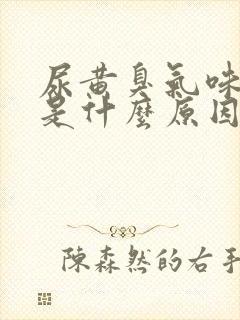 尿黃臭氣味
是什麼原因
陳森然的右手